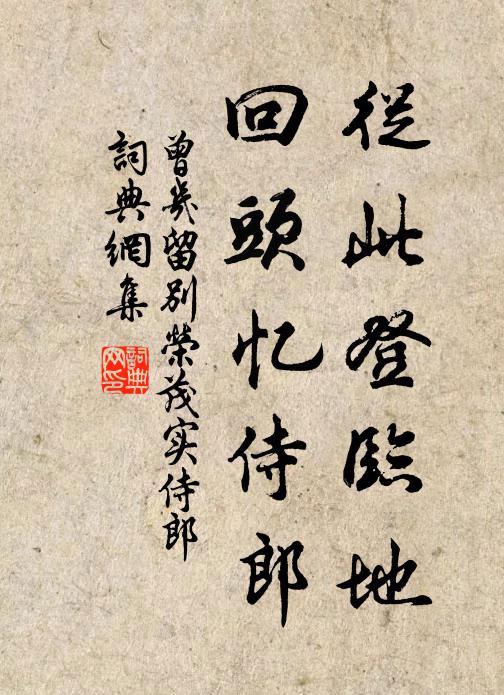 從此登臨地
回頭忆侍郎
曾幾留别榮茂实侍郎
詞典網集
詞典网印